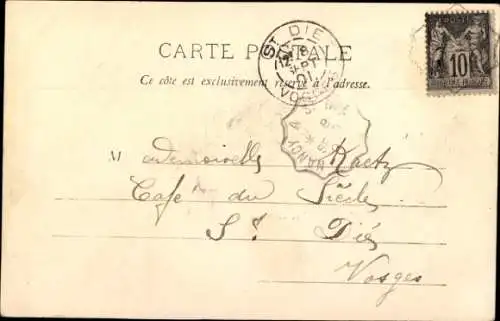 CARTE POSTALE
Ce côté est exclusivement réservé à l'adresse.
POSTE
10
ST DIÉ
8
SEPT
01
VOSGES
NANCY
Mademoiselle Kaetz
Café du Siècle
St Dié
Vosges